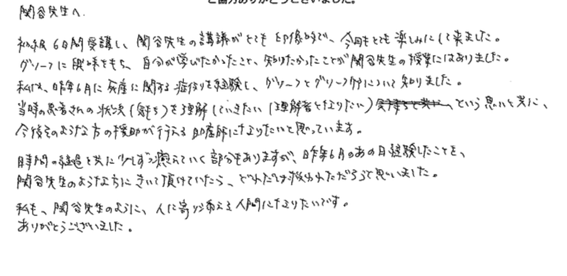 ご協力ありがとうございました。
関谷先生へ
初級6日間受講し、関谷先生の講議がとても印象的で、今回もとても楽しみにして来ました。
グリーフに興味をもち、自分が学びたかったこと、知りたかったことが関谷先生の授業にはありました。
私は、昨年6月に死産に関する症例を経験し、グリーフとグリーフケアについて知りました。
当時の患者さんの状況(気持ち)を理解していきたい(理解者となりたい)という思いと共に、
今後そのような方の援助が行える助産師になりたいと思っています。
時間の経過と共に少しずつ癒えていく部分もありますが、昨年6月のあの日経験したことを、
関谷先生のような方にきいて頂けていたら、どれだけ救われただろうと思いました。
私も、関谷先生のように、人に寄り添える人間になりたいです。
ありがとうございました。